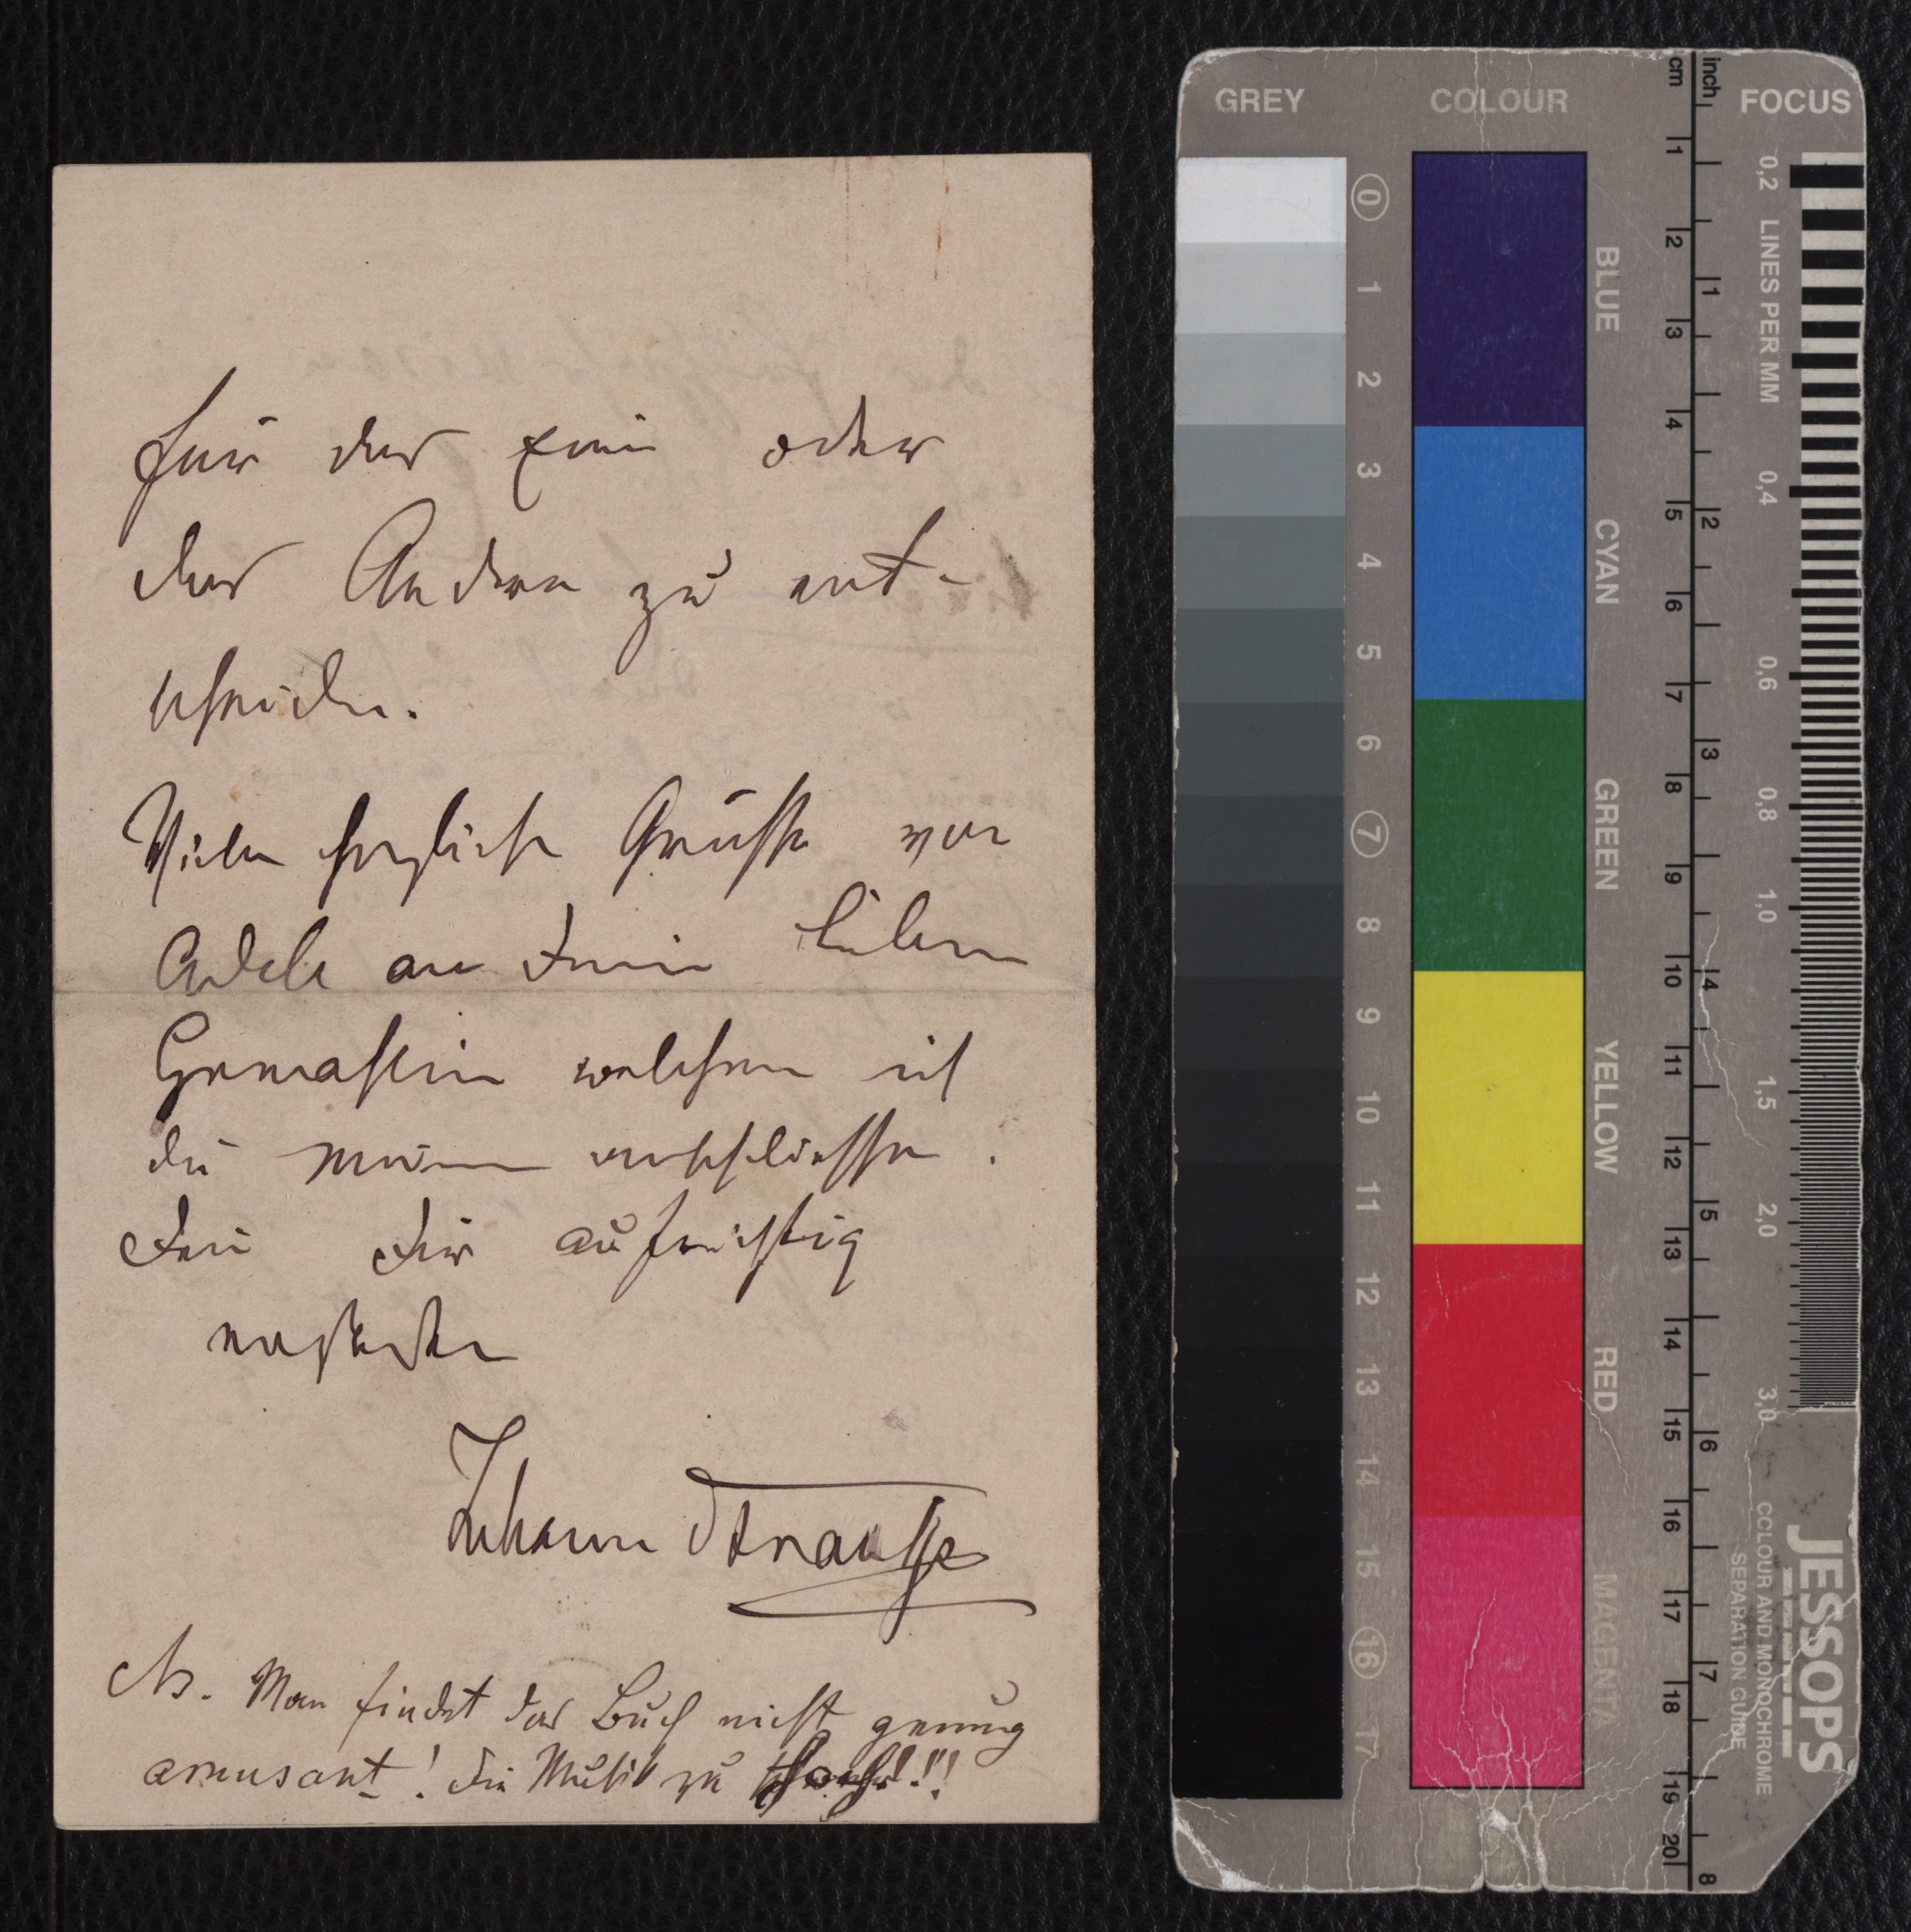 für das Eine oder
das Andere zu ent-
scheiden.
Viele herzliche Grüsse von
Adele an Deine liebe
Gemahlin welchen ich
die meinen anschliesse.
Dein Dir aufrichtig
Johann Strauss
NB. Man findet das Buch nicht genug
amusant! Die Musik zu !!!
GREY COLOUR FOCUS
cm inch
0 1 2 3 4 5 6 7 8 9 10 11 12 13 14 15 16 17
BLUE CYAN GREEN YELLOW RED MAGENTA
1 2 3 4 5 6 7 8 9 10 11 12 13 14 15 16 17 18 19 20
1 2 3 4 5 6 7 8
0,2 LINES PER MM 0,4 0,6 0,8 1,0 1,5 2,0 3,0
JESSOPS
COLOUR AND MONOCHROME
SEPARATION GUIDE